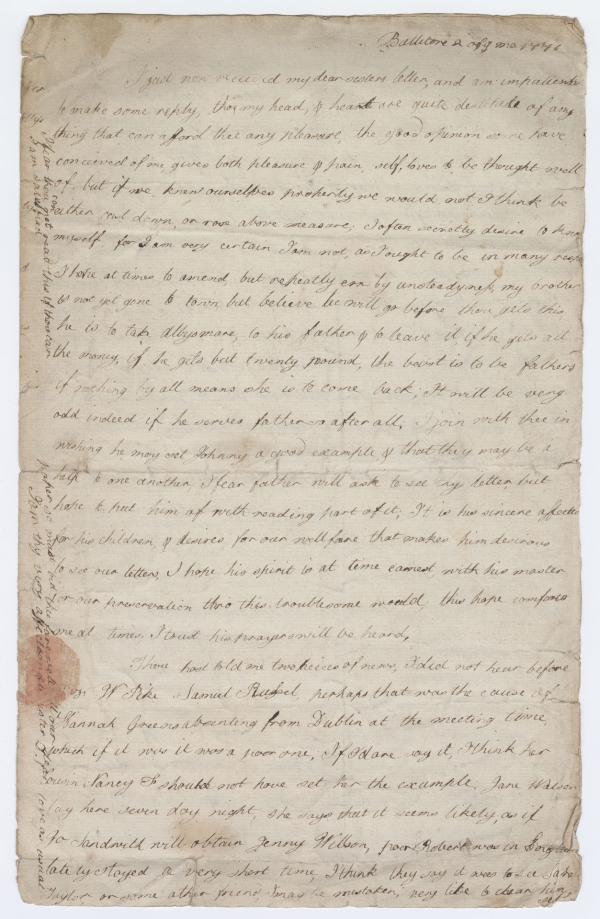 Ballitore 2 of 9 mo 1771
I just now received my dear sisters letter, and am impatient
to make some reply, tho my head, & heart are quite destitute of any
thing that can afford thee any pleasure, the good opinion some have
conceived of me, gives both pleasure & pain, self, loves to be thought well
of, but if we knew ourselves properly we would not I think be
either cast down, or rose above measure; I often secretly desire to
myself for I am very certain I am not, as I ought to be in many
I hope at times to amend but repeatly err by unsteadyness, my brother
is not yet gone to town but believe he will go before thou gets this
he is to take allysmare, to his father & to leave it if he gets all
the money, if he gets but twenty pound, the beast is to be fathers
if nothing by all means she is to come back; It will be very
odd indeed if he serves father so after all, I join with thee in
wishing he may set Johnny a good example & that they may be a
help to one another, I fear father will ask to see my letter, but
hope to put him of with reading part of it; It is his sincere affection
for his children, & desires for our wellfare that makes him desirous
to see our letters, I hope his spirit is at time earnest with his master
for our preservation thro this troublesome world, this hope comforts
me at times, I trust his prayers will be heard,
Thou hast told me two peices of news, I did not hear before
W Pike Samuel Russel, perhaps that was the cause of
Hannah Greens absenting from Dublin at the meeting time,
which if it was it was a poor one, If I dare say it, I think her
cousin Nancy F should not have set her the example, Jane Watson
lay here seven day night, she says that it seems likely, as if
Jo Sandwild will obtain Jenny Willson, poor Robert was in
lately stayed a very short time, I think they say it was to see
Taylor or some other friend I may be mistaken, very like to clear him
self
I fear thou cant read this if thou can
I am satisfied
paper so must put
I am thy very affectionate sister
love as usual